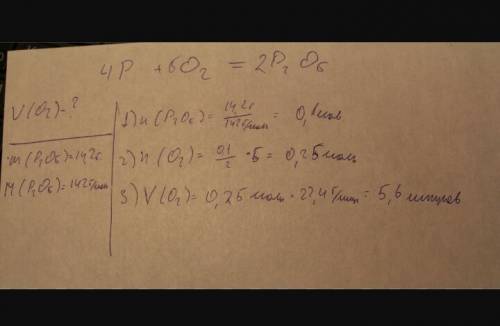 4P + 5O2 = 2P2O5
V(O2) - ?
m(P2O5) = 14,2г
M(P2O5) = 142г/моль
1) n(P2O5) = 14,2г / 142г/моль = 0,1моль
2) n(O2) = 0,1/2 · 5 = 0,25моль
3) V(O2) = 0,25 моль · 22,4 г/моль = 5,6 литров